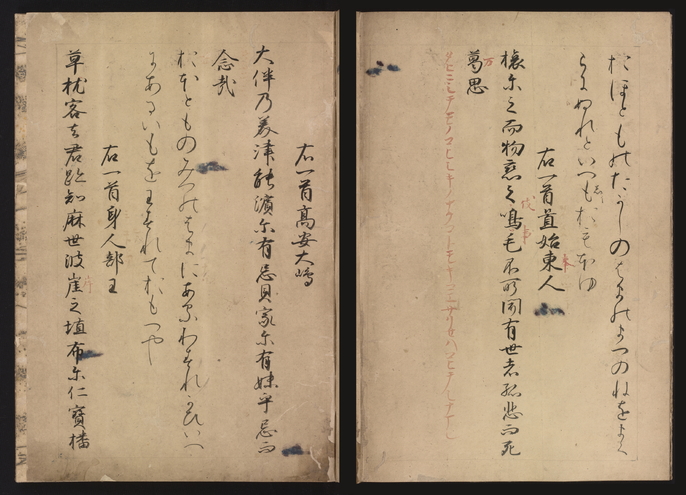 おほとものたかしのはまのまつのねをまく
らにぬれといへもおもほゆ
右一首置始東人
旅尓之而物戀之鳴毛不所聞有世者孤悲而死
萬思
右一首高安大嶋
大伴乃美津能濱尓有忘貝家尓有妹乎忘而
念哉
おほとものみつのはまにあるわすれかひいへ
にあるいもをわすれておもへや
右一首身人部王
草枕客去君跡知麻世波崖之埴布尓仁寶播